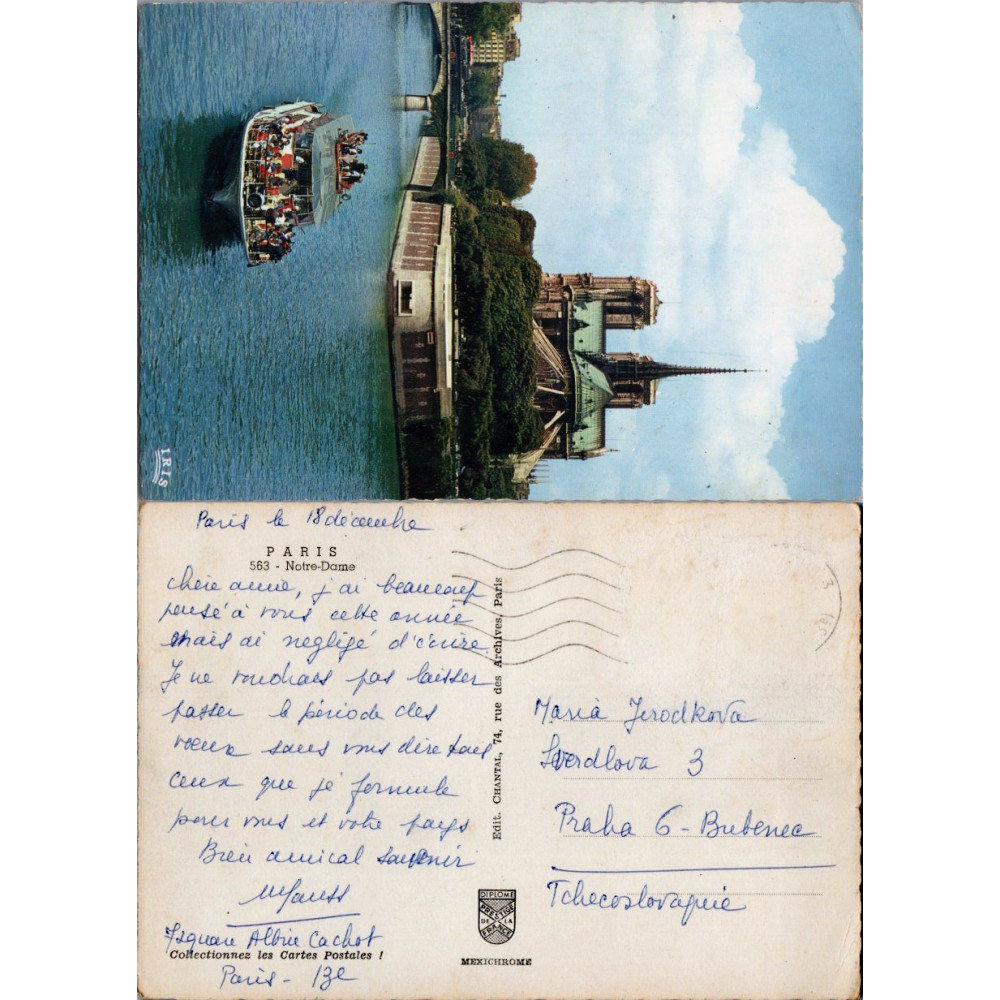 IRIS
Paris le 18 décembre
PARIS
563 - Notre-Dame
Chère amie, j'ai beaucoup
pensé à vous cette année
mais ai negligé d'écrire.
Je ne voudrais pas laisser
passer la période des
voeux sans vous dire tous
ceux que je formule
pour vous et votre pays
Bien amical souvenir
7 square Albin Cachot
Collectionnez les Cartes Postales !
Paris - 13e
Edit. CHANTAL, 74, rue des Archives, Paris
DIPLOME
PRESTIGE
DE LA
FRANCE
MEXICHROME
Maria Jerodkova
Sverdlova 3
Praha 6 - Bubenec
Tchecoslovaquie